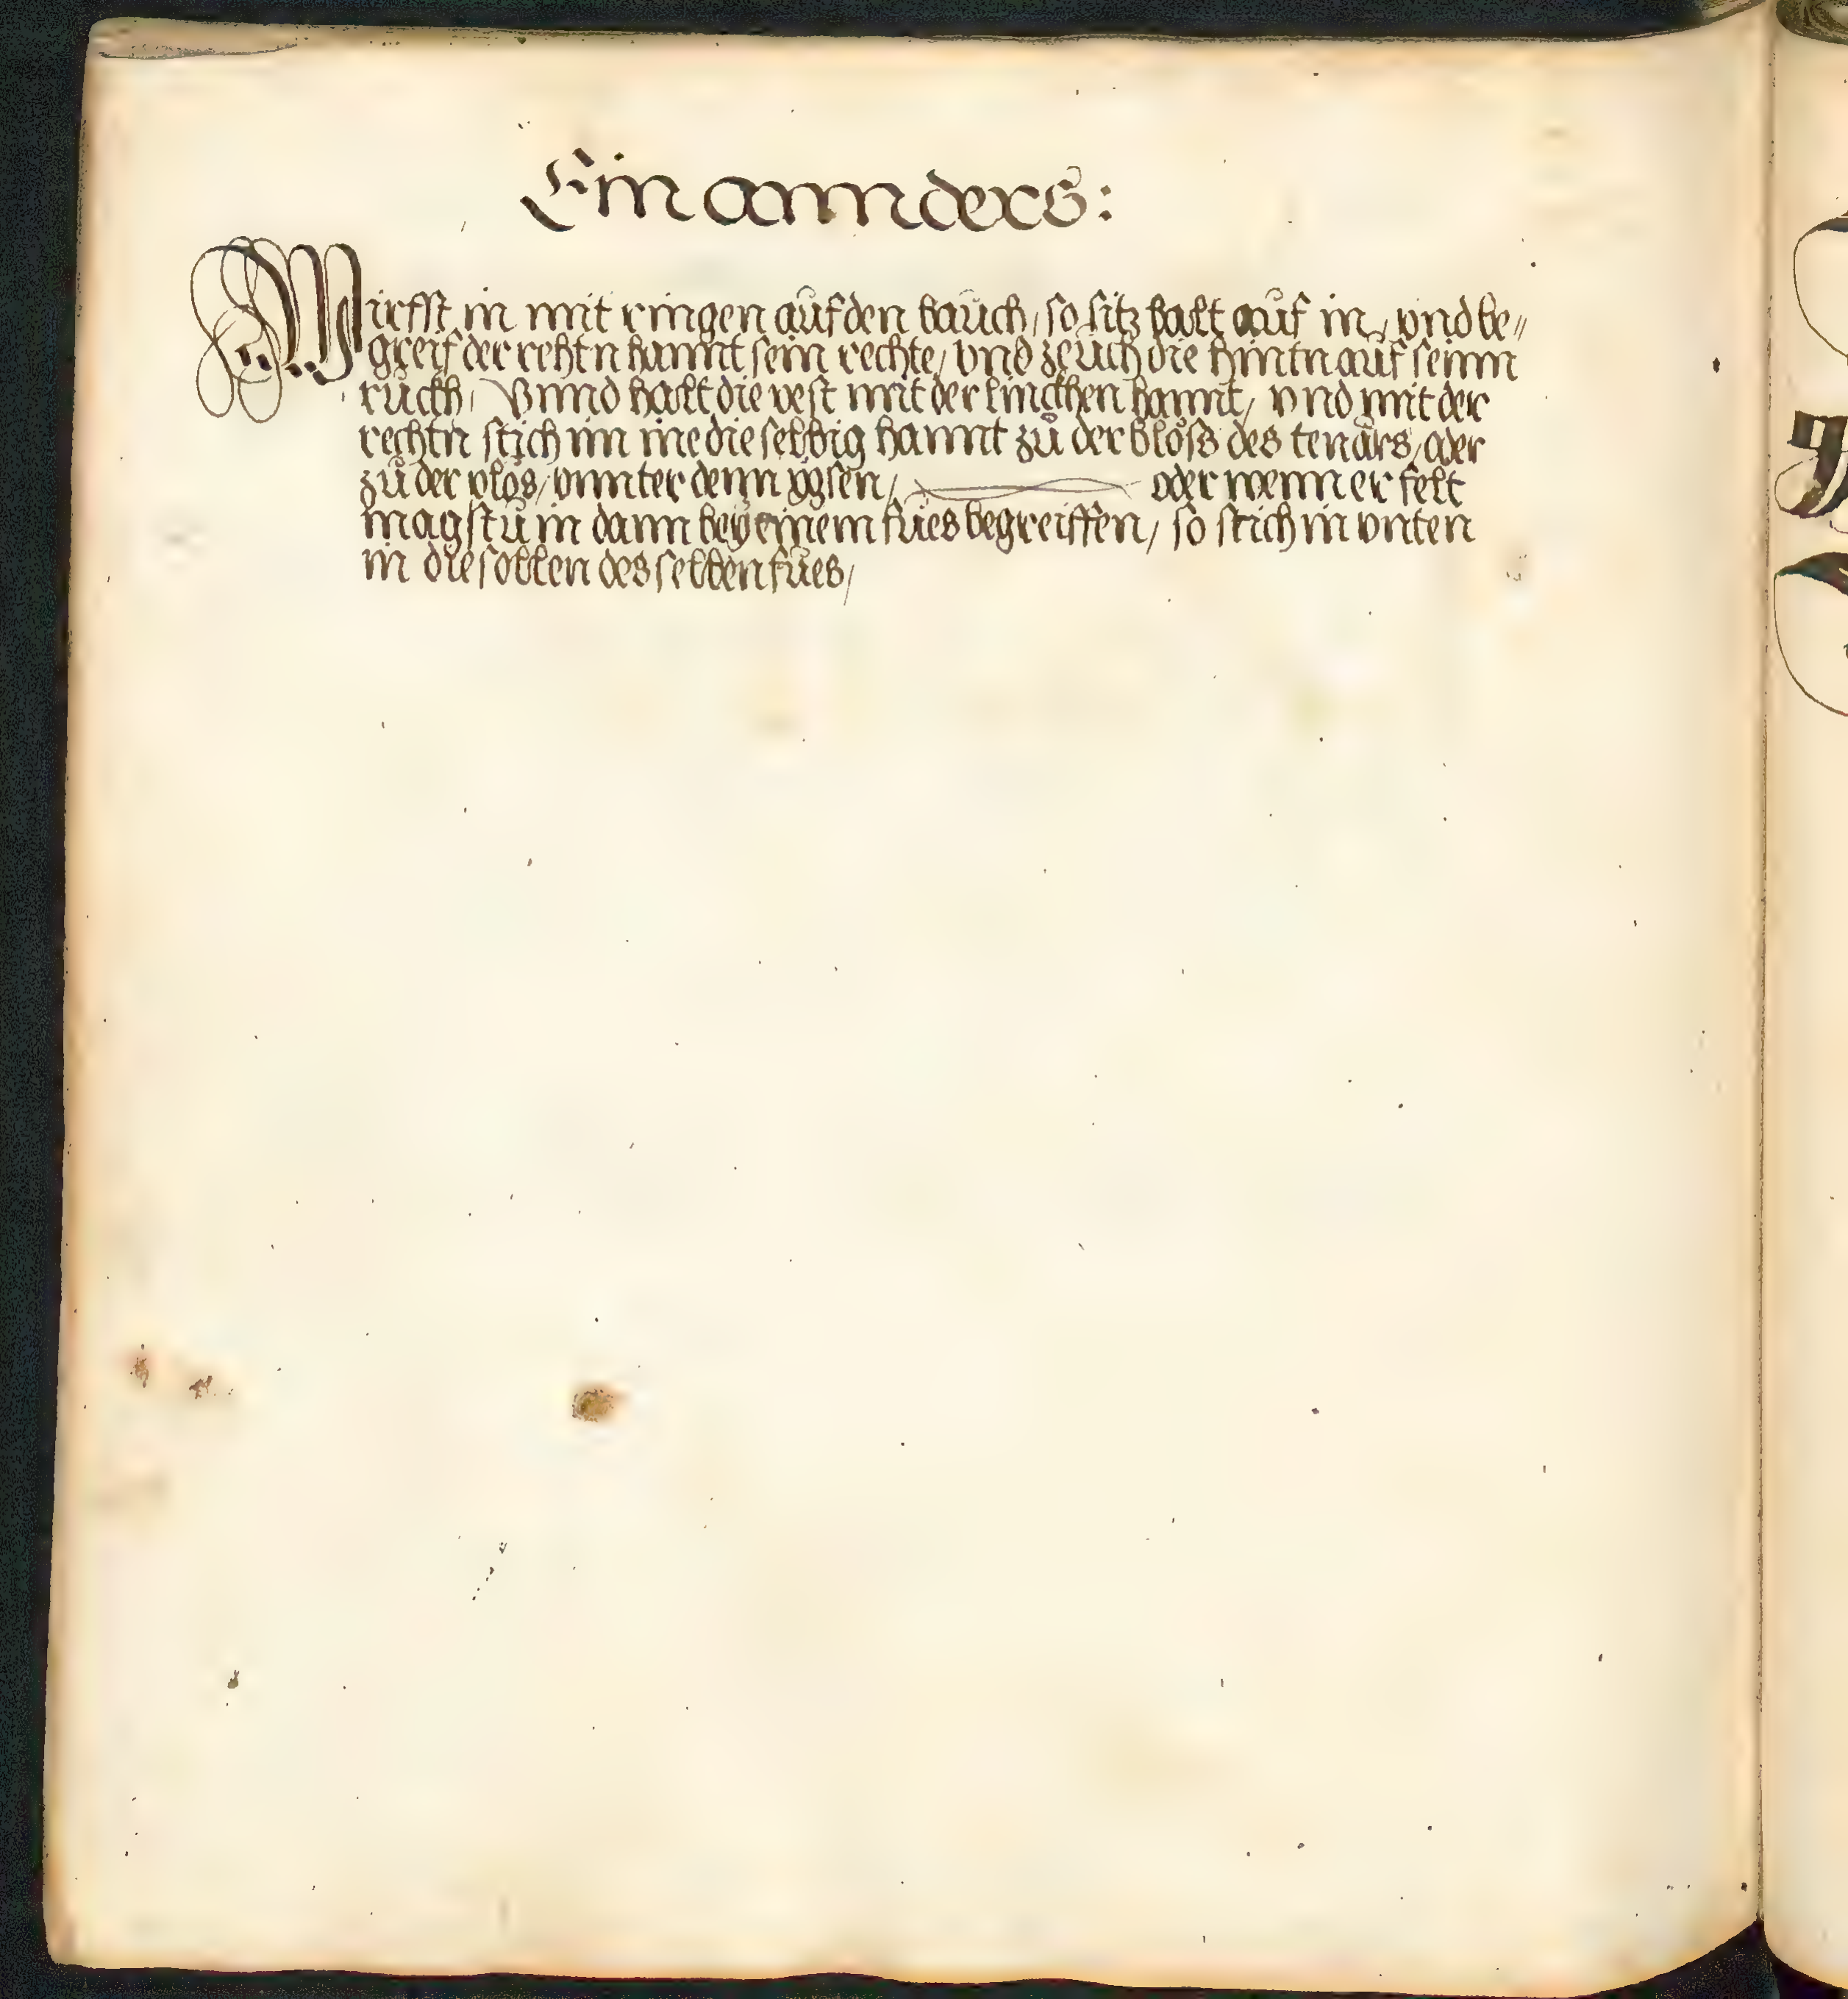 Ein annders:
Wirfst in mit ringen aůf den baůch, so sitz balt aůf in, vnd be„
greif der rehtn hannt sein rechte, vnd zeůch die hintn aůf seinn
růckh, Vnnd halt die vest mit der linckhen hannt, vnd mit der
rechtn stich im inn die selbig hannt zů der blöss des tenärs, oder
zů der plös, vnnter denn ÿgsen, oder wenn er felt
magstů in dann beÿ einem fůes begreiffen, so stich in vnten
in die sollen des selben fůes,